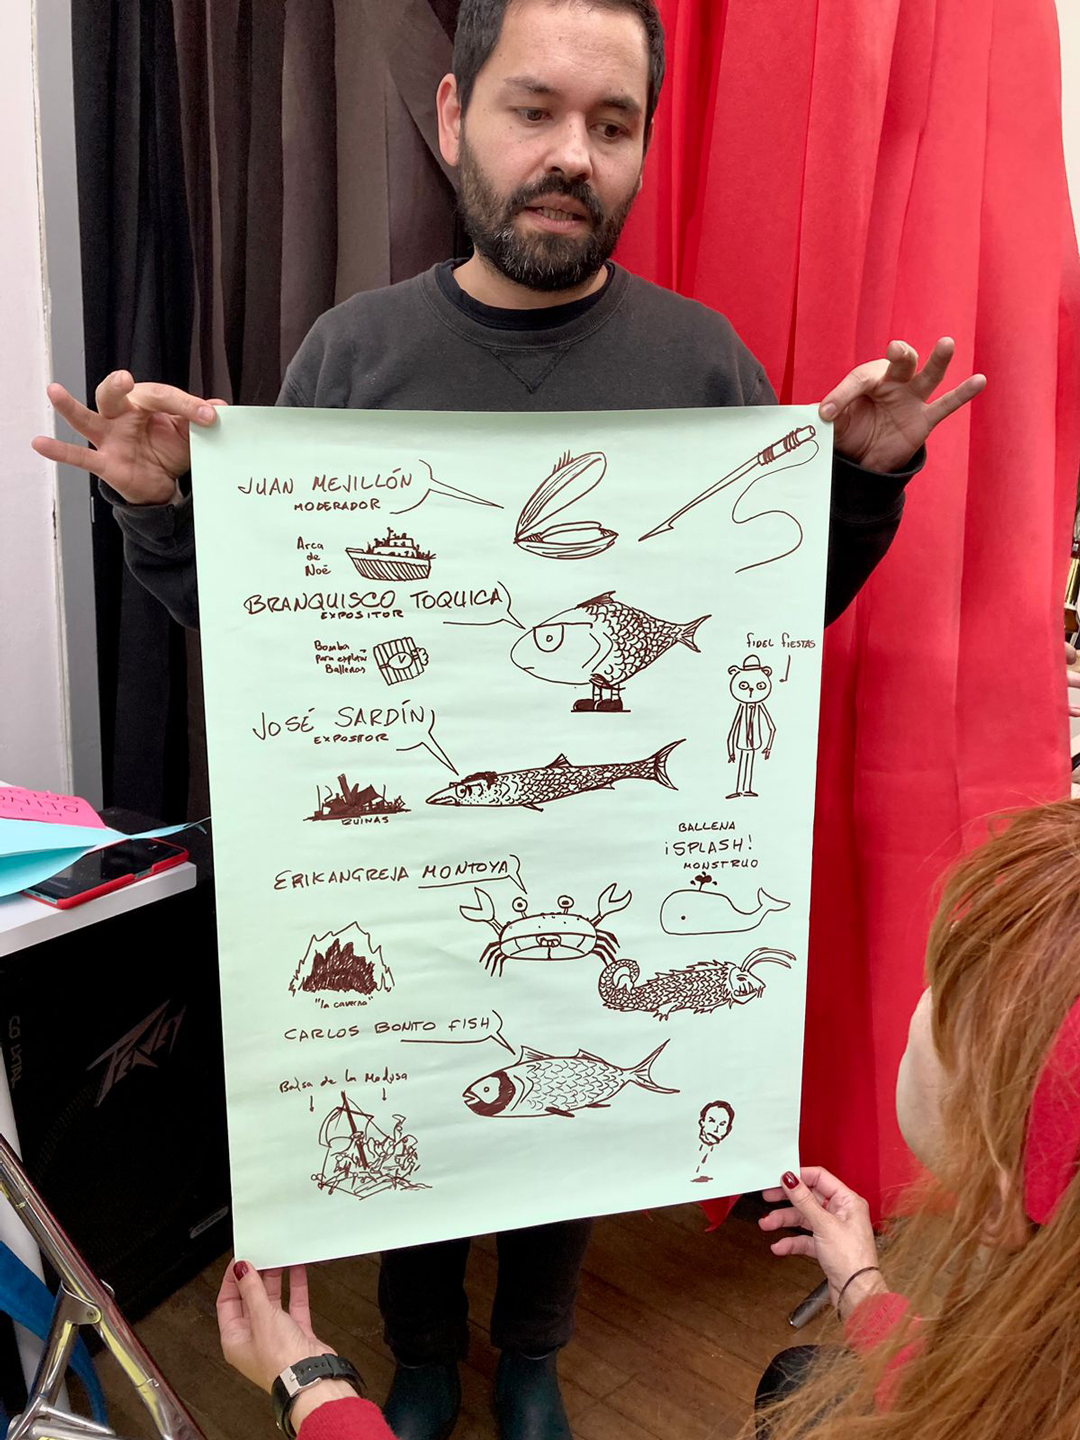 JUAN MEJILLÓN
MODERADOR
Arca
de
Noé
BRANQUISCO TOQUICA
EXPOSITOR
Bomba
para explotar
Ballenas
FIDEL FIESTAS
JOSÉ SARDÍN
EXPOSITOR
RUINAS
BALLENA
¡SPLASH!
MONSTRUO
ERIKANGREJA MONTOYA
"la caverna"
CARLOS BONITO FISH
Balsa de la Medusa
PEAVEY